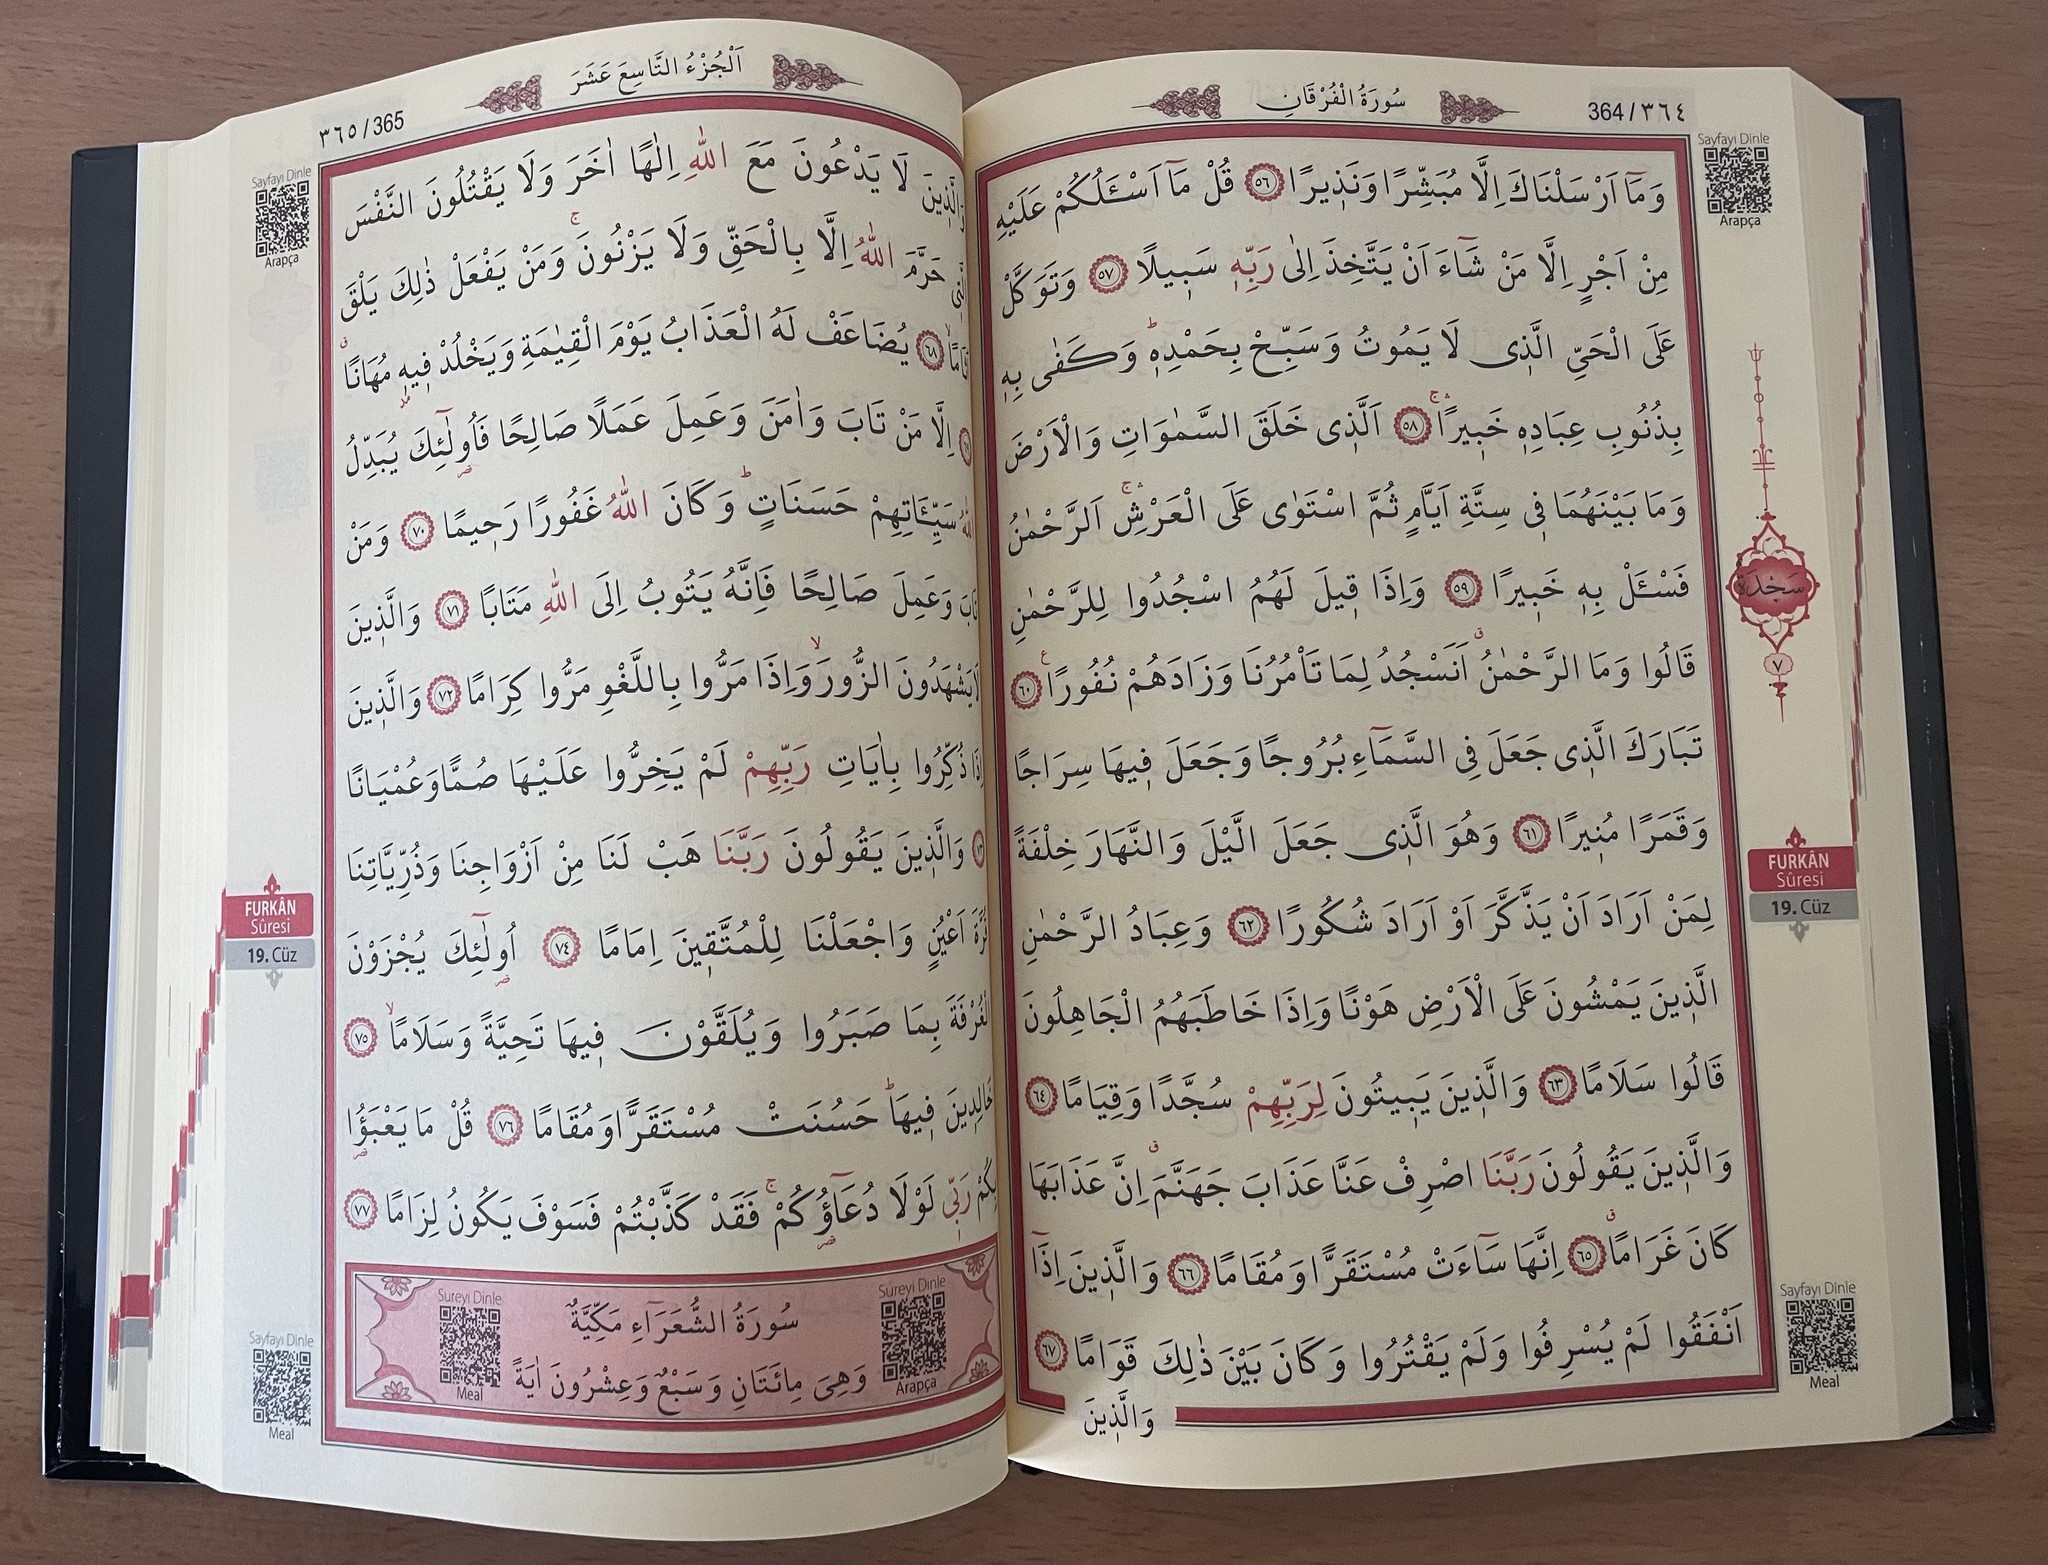 سُورَةُ الْفُرْقَانِ
364 / ٣٦٤
Sayfayı Dinle
Arapça
وَمَٓا اَرْسَلْنَاكَ اِلَّا مُبَشِّرًا وَنَذ۪يرًا ﴿٥٦﴾ قُلْ مَٓا اَسْـَٔلُكُمْ عَلَيْهِ
مِنْ اَجْرٍ اِلَّا مَنْ شَٓاءَ اَنْ يَتَّخِذَ اِلٰى رَبِّه۪ سَب۪يلًا ﴿٥٧﴾ وَتَوَكَّلْ
عَلَى الْحَيِّ الَّذ۪ى لَا يَمُوتُ وَسَبِّحْ بِحَمْدِه۪ۜ وَكَفٰى بِه۪
بِذُنُوبِ عِبَادِه۪ خَب۪يرًاۚۛ ﴿٥٨﴾ اَلَّذ۪ى خَلَقَ السَّمٰوَاتِ وَالْاَرْضَ
وَمَا بَيْنَهُمَا ف۪ى سِتَّةِ اَيَّامٍ ثُمَّ اسْتَوٰى عَلَى الْعَرْشِۚۛ اَلرَّحْمٰنُ
فَسْـَٔلْ بِه۪ خَب۪يرًا ﴿٥٩﴾ وَاِذَا ق۪يلَ لَهُمُ اسْجُدُوا لِلرَّحْمٰنِ
قَالُوا وَمَا الرَّحْمٰنُۗ اَنَسْجُدُ لِمَا تَأْمُرُنَا وَزَادَهُمْ نُفُورًا ﴿٦٠﴾ ع
تَبَارَكَ الَّذ۪ى جَعَلَ فِى السَّمَٓاءِ بُرُوجًا وَجَعَلَ ف۪يهَا سِرَاجًا
وَقَمَرًا مُن۪يرًا ﴿٦١﴾ وَهُوَ الَّذ۪ى جَعَلَ الَّيْلَ وَالنَّهَارَ خِلْفَةً
لِمَنْ اَرَادَ اَنْ يَذَّكَّرَ اَوْ اَرَادَ شُكُورًا ﴿٦٢﴾ وَعِبَادُ الرَّحْمٰنِ
الَّذ۪ينَ يَمْشُونَ عَلَى الْاَرْضِ هَوْنًا وَاِذَا خَاطَبَهُمُ الْجَاهِلُونَ
قَالُوا سَلَامًا ﴿٦٣﴾ وَالَّذ۪ينَ يَب۪يتُونَ لِرَبِّهِمْ سُجَّدًا وَقِيَامًا ﴿٦٤﴾
وَالَّذ۪ينَ يَقُولُونَ رَبَّنَا اصْرِفْ عَنَّا عَذَابَ جَهَنَّمَۗ اِنَّ عَذَابَهَا
كَانَ غَرَامًاۗ ﴿٦٥﴾ اِنَّهَا سَٓاءَتْ مُسْتَقَرًّا وَمُقَامًا ﴿٦٦﴾ وَالَّذ۪ينَ اِذَٓا
اَنْفَقُوا لَمْ يُسْرِفُوا وَلَمْ يَقْتُرُوا وَكَانَ بَيْنَ ذٰلِكَ قَوَامًا ﴿٦٧﴾
وَالَّذ۪ينَ
سَجْدَة
٧
FURKÂN
Sûresi
19. Cüz
Sayfayı Dinle
Meal
اَلْجُزْءُ التَّاسِعَ عَشَرَ
٣٦٥ / 365
Sayfayı Dinle
Arapça
وَالَّذ۪ينَ لَا يَدْعُونَ مَعَ اللّٰهِ اِلٰهًا اٰخَرَ وَلَا يَقْتُلُونَ النَّفْسَ
حَرَّمَ اللّٰهُ اِلَّا بِالْحَقِّ وَلَا يَزْنُونَۚ وَمَنْ يَفْعَلْ ذٰلِكَ يَلْقَ
﴿٦٨﴾ يُضَاعَفْ لَهُ الْعَذَابُ يَوْمَ الْقِيٰمَةِ وَيَخْلُدْ ف۪يه۪ مُهَانًاۗ
اِلَّا مَنْ تَابَ وَاٰمَنَ وَعَمِلَ عَمَلًا صَالِحًا فَاُو۬لٰٓئِكَ يُبَدِّلُ
سَيِّـَٔاتِهِمْ حَسَنَاتٍۜ وَكَانَ اللّٰهُ غَفُورًا رَح۪يمًا ﴿٧٠﴾ وَمَنْ
وَعَمِلَ صَالِحًا فَاِنَّهُ يَتُوبُ اِلَى اللّٰهِ مَتَابًا ﴿٧١﴾ وَالَّذ۪ينَ
لَا يَشْهَدُونَ الزُّورَۙ وَاِذَا مَرُّوا بِاللَّغْوِ مَرُّوا كِرَامًا ﴿٧٢﴾ وَالَّذ۪ينَ
اِذَا ذُكِّرُوا بِاٰيَاتِ رَبِّهِمْ لَمْ يَخِرُّوا عَلَيْهَا صُمًّا وَعُمْيَانًا
وَالَّذ۪ينَ يَقُولُونَ رَبَّنَا هَبْ لَنَا مِنْ اَزْوَاجِنَا وَذُرِّيَّاتِنَا
قُرَّةَ اَعْيُنٍ وَاجْعَلْنَا لِلْمُتَّق۪ينَ اِمَامًا ﴿٧٤﴾ اُو۬لٰٓئِكَ يُجْزَوْنَ
الْغُرْفَةَ بِمَا صَبَرُوا وَيُلَقَّوْنَ ف۪يهَا تَحِيَّةً وَسَلَامًاۙ ﴿٧٥﴾
خَالِد۪ينَ ف۪يهَاۜ حَسُنَتْ مُسْتَقَرًّا وَمُقَامًا ﴿٧٦﴾ قُلْ مَا يَعْبَؤُ۬ا
بِكُمْ رَبّ۪ى لَوْلَا دُعَٓاؤُ۬كُمْۚ فَقَدْ كَذَّبْتُمْ فَسَوْفَ يَكُونُ لِزَامًا ﴿٧٧﴾
Sureyi Dinle
Meal
سُورَةُ الشُّعَرَٓاءِ مَكِّيَّةٌ
وَهِىَ مِائَتَانِ وَسَبْعٌ وَعِشْرُونَ اٰيَةً
Sureyi Dinle
Arapça
FURKÂN
Sûresi
19. Cüz
Sayfayı Dinle
Meal